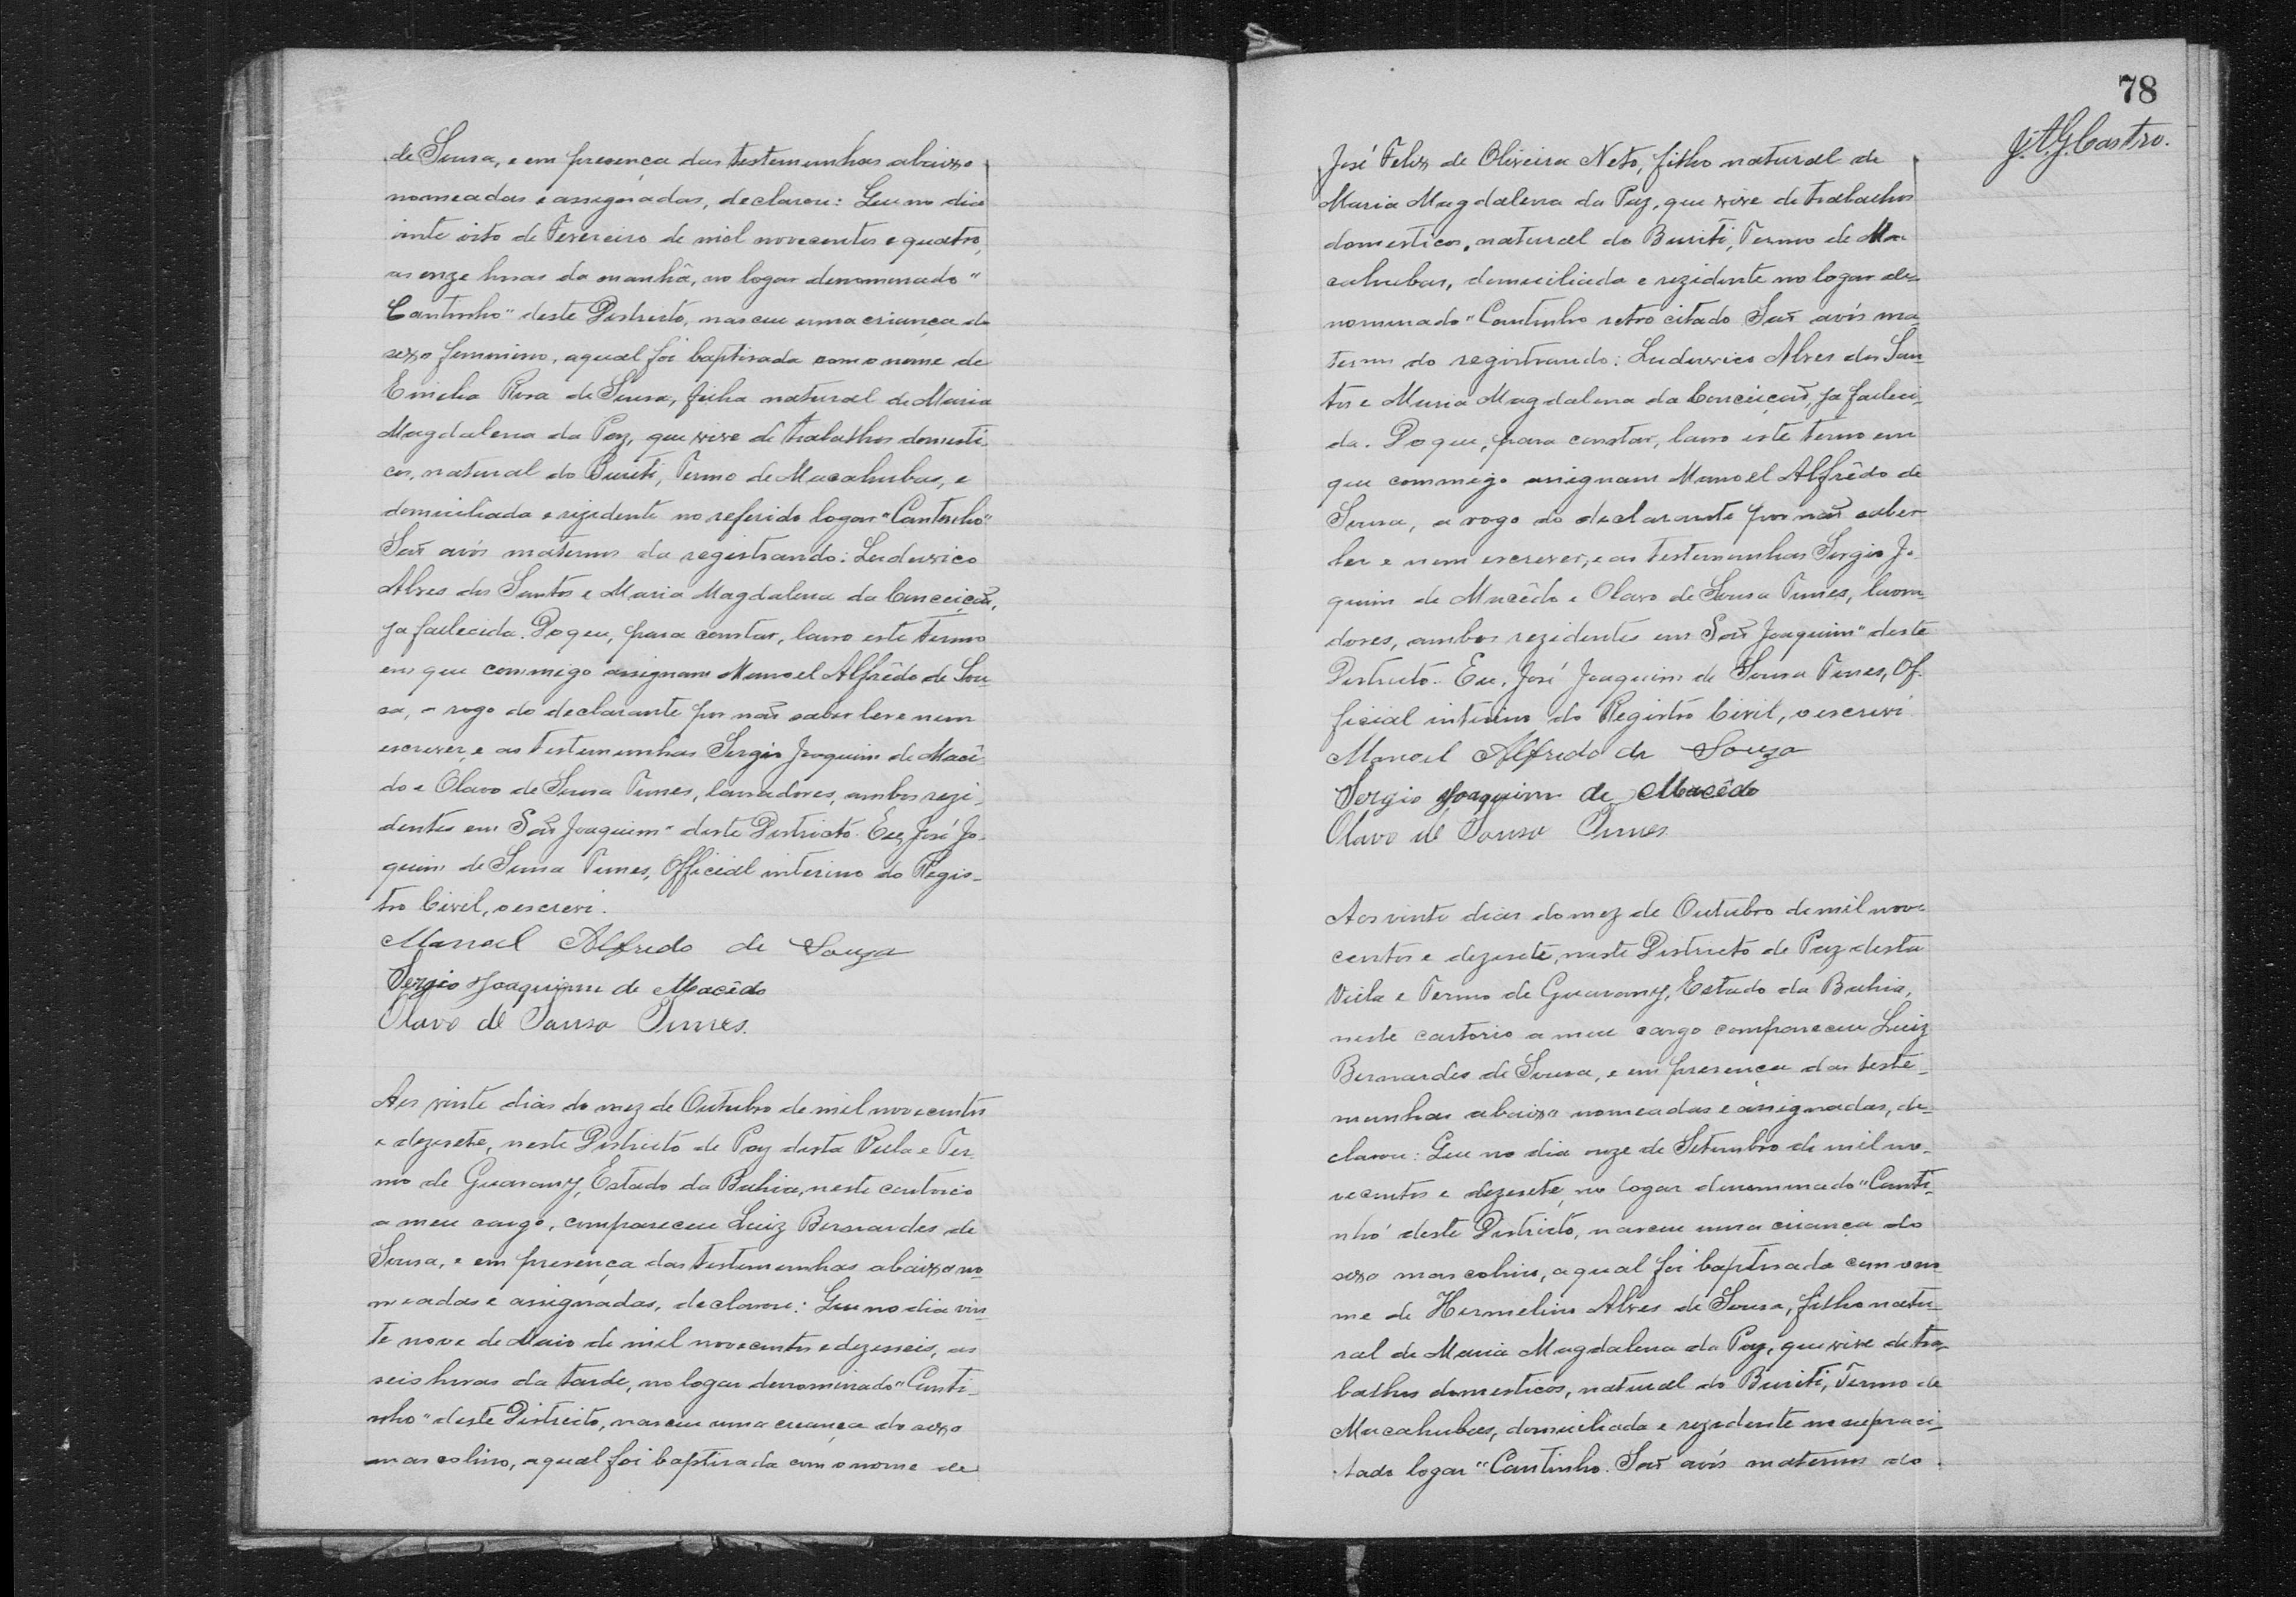 de Sousa, e em presença das testemunhas abaixo
nomeadas e assignadas, declarou: Que no dia
vinte oito de Fevereiro de mil novecentos e quatro,
as onze horas da manhã, no logar denominado "
Cantinho" deste Districto, nasceu uma criança do
sexo feminino, a qual foi baptisada com o nome de
Emilia Rosa de Sousa, filha natural de Maria
Magdalena da Paz, que vive de trabalhos domesti-
cos, natural do Buriti, Termo de Macahubas, e
domiciliada e rezidente no referido logar "Cantinho"
Saõ avós maternos da registrando: Ludovico
Alves dos Santos e Maria Magdalena da Conceiçaõ,
ja fallecida. Do que, para constar, lavro este termo
em que commigo assignam Manoel Alfrêdo de Sou-
sa, a rogo do declarante por naõ saber ler e nem
escrever, e as testemunhas Sergio Joaquim de Macê-
do e Olavo de Sousa Tunes, lavradores, ambos rezi-
dentes em Saõ Joaquim" deste Districto. Eu, José Jo-
quim de Sousa Tunes, Official interino do Regis-
tro Civil, o escrevi.
Manoel Alfredo de Souza
Sergio Joaquim de Macêdo
Olavo de Sousa Tunes.
Aos vinte dias do mez de Outubro de mil novecentos
e dezesete, neste Districto de Paz desta Villa e Ter-
mo de Guarany, Estado da Bahia, neste cartorio
a meu cargo, compareceu Luiz Bernardes de
Sousa, e em presença das testemunhas abaixo no-
meadas e assignadas, declarou: Que no dia vin-
te nove de Maio de mil novecentos e dezesseis, as
seis horas da tarde, no logar denominado "Canti-
nho" deste Districto, nasceu uma criança do sexo
mascolino, a qual foi baptisada com o nome de
78
J. A. G. Castro.
José Felix de Oliveira Neto, filho natural de
Maria Magdalena da Paz, que vive de trabalhos
domesticos, natural do Buriti, Termo de Ma-
cahubas, domiciliada e rezidente no logar de-
nominado "Cantinho retro citado Saõ avós ma-
ternos do registrando: Ludovico Alves dos San-
tos e Maria Magdalena da Conceiçaõ, ja falleci-
da. Do que, para constar, lavro este termo em
que commigo assignam Manoel Alfrêdo de
Sousa, a rogo do declarante por naõ saber
ler e nem escrever, e as testemunhas Sergio Jo-
quim de Macêdo e Olavo de Sousa Tunes, lavra-
dores, ambos rezidentes em Saõ Joaquim" deste
Districto. Eu, José Joaquim de Sousa Tunes, Of-
ficial interino do Registro Civil, o escrevi
Manoel Alfredo de Souza
Sergio Joaquim de Macêdo
Olavo de Sousa Tunes
Aos vinte dias do mez de Outubro de mil nove
centos e dezesete, neste Districto de Paz desta
Villa e Termo de Guarany, Estado da Bahia,
neste cartorio a meu cargo compareceu Luiz
Bernardes de Sousa, e em presença das teste-
munhas abaixo nomeadas e assignadas, de-
clarou: Que no dia onze de Setembro de mil no-
vecentos e dezesete, no logar denominado "Canti-
nho" deste Districto, nasceu uma criança do
sexo mascolino, a qual foi baptisada com o no-
me de Hermelino Alves de Sousa, filho natu-
ral de Maria Magdalena da Paz, que vive de tra-
balhos domesticos, natural do Buriti, Termo de
Macahubas, domiciliada e rezidente no supraci-
tado logar "Cantinho. Saõ avós maternos do